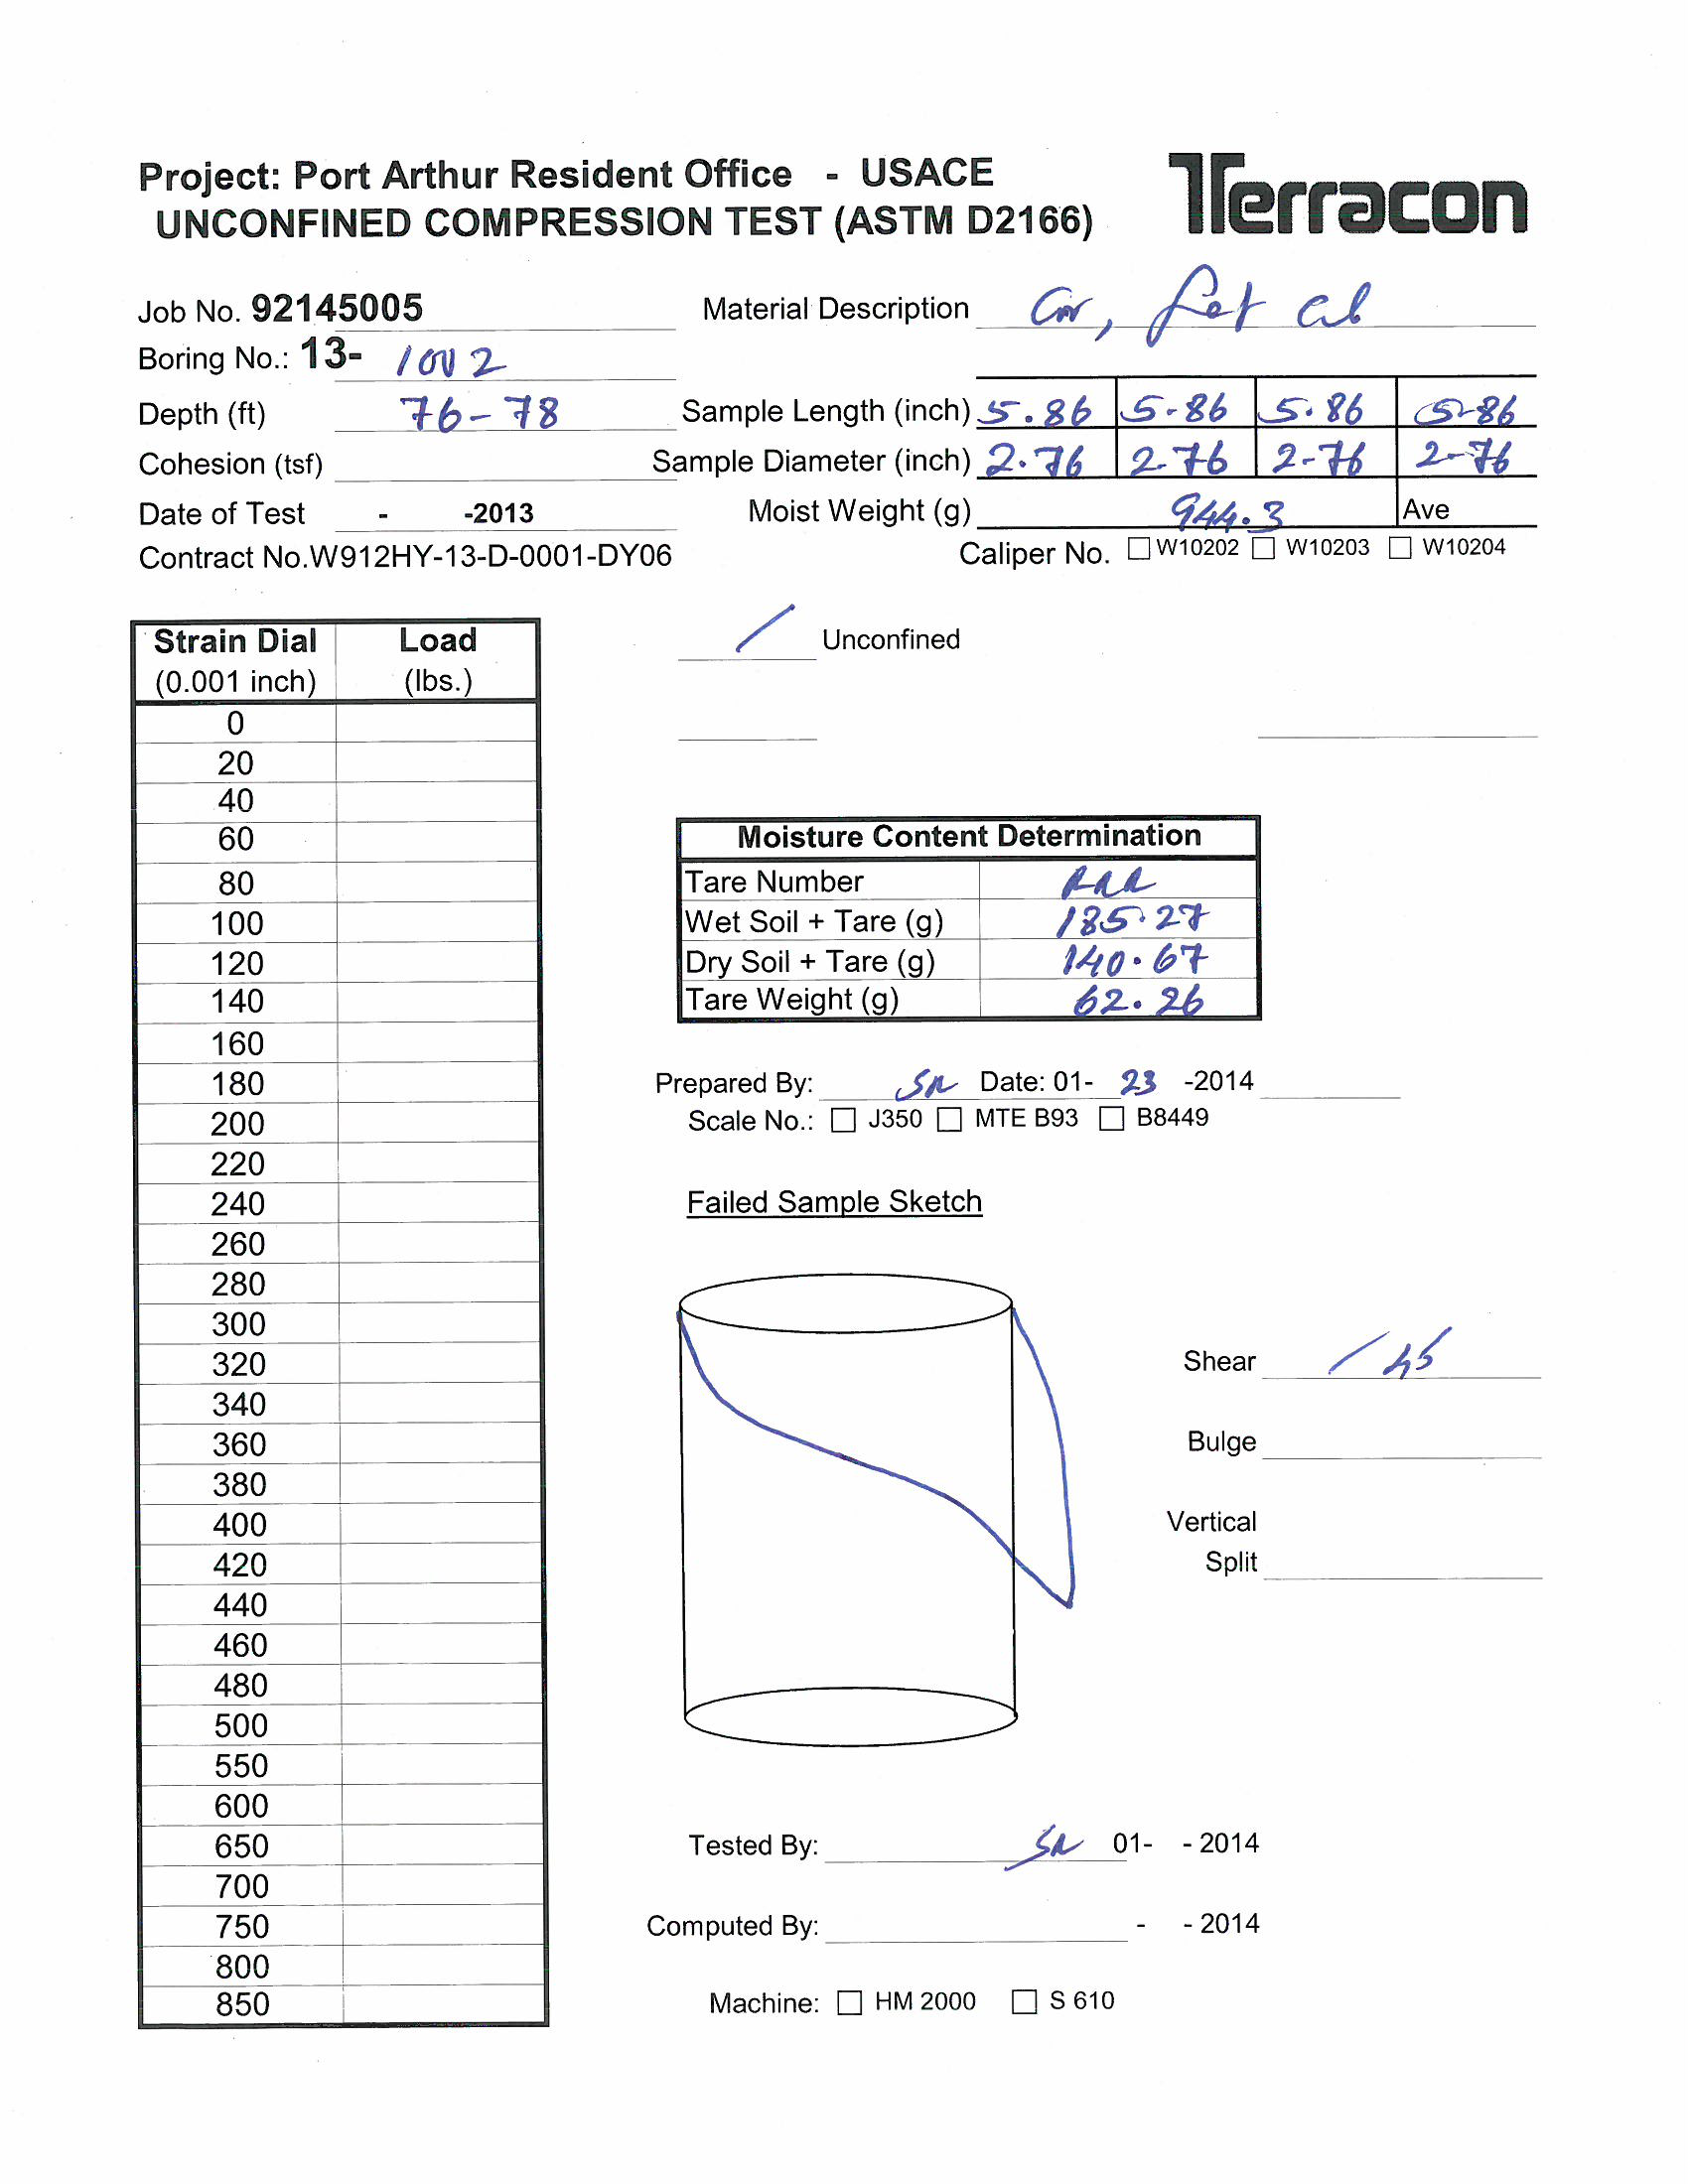 Project: Port Arthur Resident Office - USACE
UNCONFINED COMPRESSION TEST (ASTM D2166)
Terracon
Job No. 92145005
Material Description
Boring No.: 13-
Depth (ft) 76-78
Sample Length (inch) 5.86 5-86 5.86 5-86
Cohesion (tsf)
Sample Diameter (inch) 2.76 2-76 2-76 2-76
Date of Test - -2013
Moist Weight (g) 944.3 Ave
Contract No.W912HY-13-D-0001-DY06
Caliper No. W10202 W10203 W10204
Strain Dial Load
(0.001 inch) (lbs.)
0
20
40
60
80
100
120
140
160
180
200
220
240
260
280
300
320
340
360
380
400
420
440
460
480
500
550
600
650
700
750
800
850
/ Unconfined
Moisture Content Determination
Tare Number
Wet Soil + Tare (g) 185.27
Dry Soil + Tare (g) 140.67
Tare Weight (g) 62.26
Prepared By: SR Date: 01- 23 -2014
Scale No.: J350 MTE B93 B8449
Failed Sample Sketch
Shear / 45
Bulge
Vertical
Split
Tested By: SR 01- - 2014
Computed By: - - 2014
Machine: HM 2000 S 610